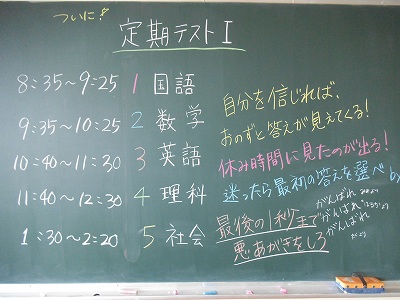 ついに！
定期テストⅠ
8：35～9：25 1 国語
9：35～10：25 2 数学
10：40～11：30 3 英語
11：40～12：30 4 理科
1：30～2：20 5 社会
自分を信じれば、
おのずと答えが見えてくる！
休み時間に見たのが出る！
迷ったら最初の答えを選べ
最後の1秒まで
悪あがきをしろ
がんばれ
がんばれ
がんばれ